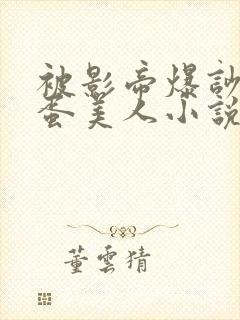 被影帝爆訡
蛋美人小説
董雲猜